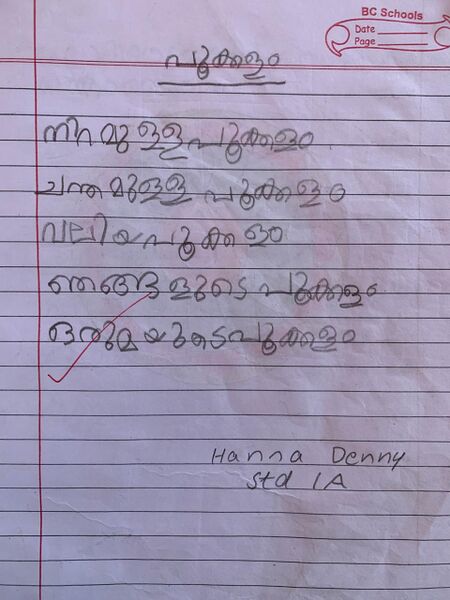 BC Schools
Date
Page
പൂക്കളം
നിറമുള്ള പൂക്കളം
ചന്തമുള്ള പൂക്കളം
വലിയ പൂക്കളം
ഞങ്ങളുടെ പൂക്കളം
ഒരുമയുടെ പൂക്കളം
Hanna Denny
std 1A